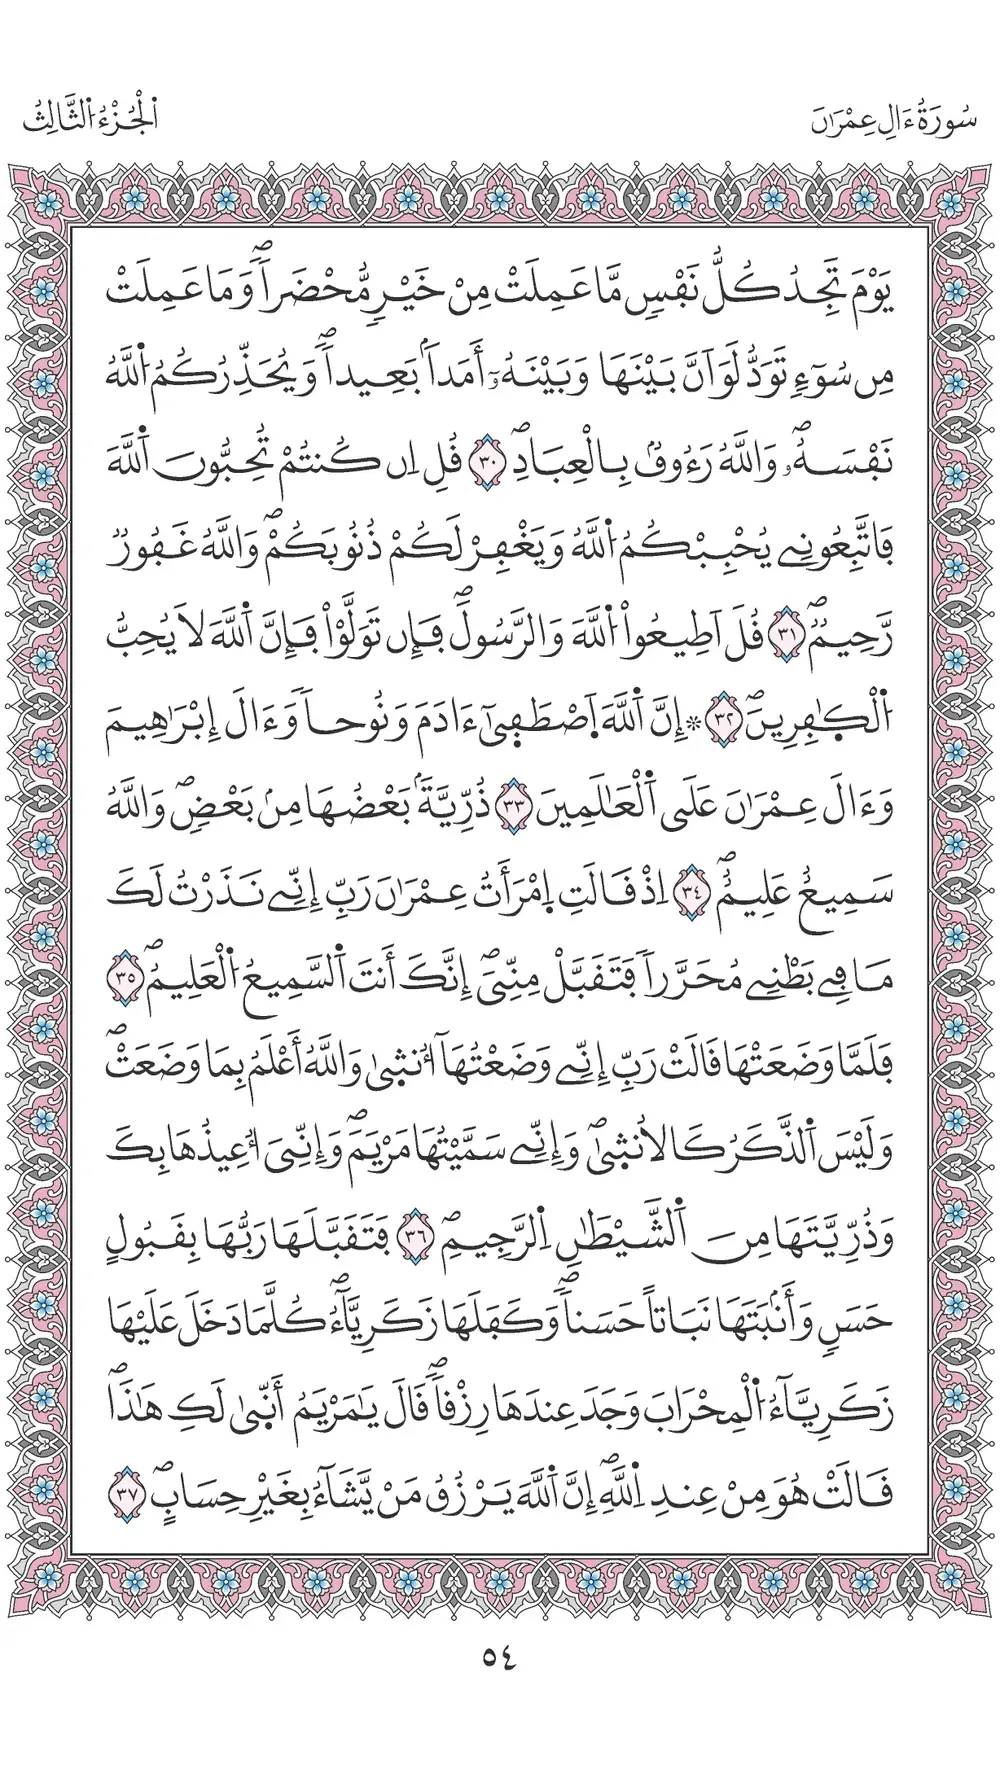 سُورَةُ ءَالِ عِمْرَٰنَ
اَلْجُزْءُ اَلثَّالِثُ
يَوْمَ تَجِدُ كُلُّ نَفْسٖ مَّا عَمِلَتْ مِنْ خَيْرٖ مُّحْضَراٗۖ وَمَا عَمِلَتْ
مِن سُوٓءٖ تَوَدُّ لَوَ اَنَّ بَيْنَهَا وَبَيْنَهُۥٓ أَمَداَۢ بَعِيداٗۖ وَيُحَذِّرُكُمُ اُللَّهُ
نَفْسَهُۥۖ وَاللَّهُ رَءُوفُۢ بِالْعِبَادِۖ ٣٠ قُلِ اِن كُنتُمْ تُحِبُّونَ اَللَّهَ
فَاتَّبِعُونِے يُحْبِبْكُمُ اُللَّهُ وَيَغْفِرْ لَكُمْ ذُنُوبَكُمْۖ وَاللَّهُ غَفُورٞ
رَّحِيمٞۖ ٣١ قُلَ اَطِيعُواْ اُللَّهَ وَالرَّسُولَۖ فَإِن تَوَلَّوْاْ فَإِنَّ اَللَّهَ لَا يُحِبُّ
اُلْكٰفِرِينَۖ ٣٢ ۞إِنَّ اَللَّهَ اَصْطَفىٰٓ ءَادَمَ وَنُوحاٗ وَءَالَ إِبْرَٰهِيمَ
وَءَالَ عِمْرَٰنَ عَلَى اَلْعَٰلَمِينَ ٣٣ ذُرِّيَّةَۢ بَعْضُهَا مِنۢ بَعْضٖۖ وَاللَّهُ
سَمِيعٌ عَلِيمٌۖ ٣٤ اِذْ قَالَتِ اِمْرَأَتُ عِمْرَٰنَ رَبِّ إِنِّے نَذَرْتُ لَكَ
مَا فِے بَطْنِے مُحَرَّراٗ فَتَقَبَّلْ مِنِّيَۖ إِنَّكَ أَنتَ اَلسَّمِيعُ اُلْعَلِيمُۖ ٣٥
فَلَمَّا وَضَعَتْهَا قَالَتْ رَبِّ إِنِّے وَضَعْتُهَآ أُنثىٰ وَاللَّهُ أَعْلَمُ بِمَا وَضَعَتْۖ
وَلَيْسَ اَلذَّكَرُ كَالُانثىٰۖ وَإِنِّے سَمَّيْتُهَا مَرْيَمَۖ وَإِنِّيَ أُعِيذُهَا بِكَ
وَذُرِّيَّتَهَا مِنَ اَلشَّيْطَٰنِ اِلرَّجِيمِۖ ٣٦ فَتَقَبَّلَهَا رَبُّهَا بِقَبُولٍ
حَسَنٖ وَأَنۢبَتَهَا نَبَاتاً حَسَناٗۖ وَكَفَلَهَا زَكَرِيَّآءُۖ كُلَّمَا دَخَلَ عَلَيْهَا
زَكَرِيَّآءُ اُلْمِحْرَابَ وَجَدَ عِندَهَا رِزْقاٗۖ قَالَ يَٰمَرْيَمُ أَنّىٰ لَكِ هَٰذَاۖ
قَالَتْ هُوَ مِنْ عِندِ اِللَّهِۖ إِنَّ اَللَّهَ يَرْزُقُ مَنْ يَّشَآءُ بِغَيْرِ حِسَابٍۖ ٣٧
٥٤